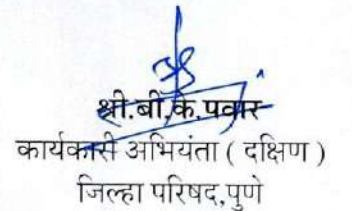 श्री.बी.के.पवार
कार्यकारी अभियंता ( दक्षिण )
जिल्हा परिषद,पुणे